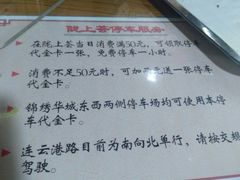 陇上荟停车服务
在陇上荟当日消费满50元,可领取停车
代金卡一张,免费停车一小时。
消费不足50元时,可加两元送一张停车
代金卡。
锦绣华城东西两侧停车场均可使用本停
车代金卡。
连云港路目前为南向北单行,请按交规
驾驶。